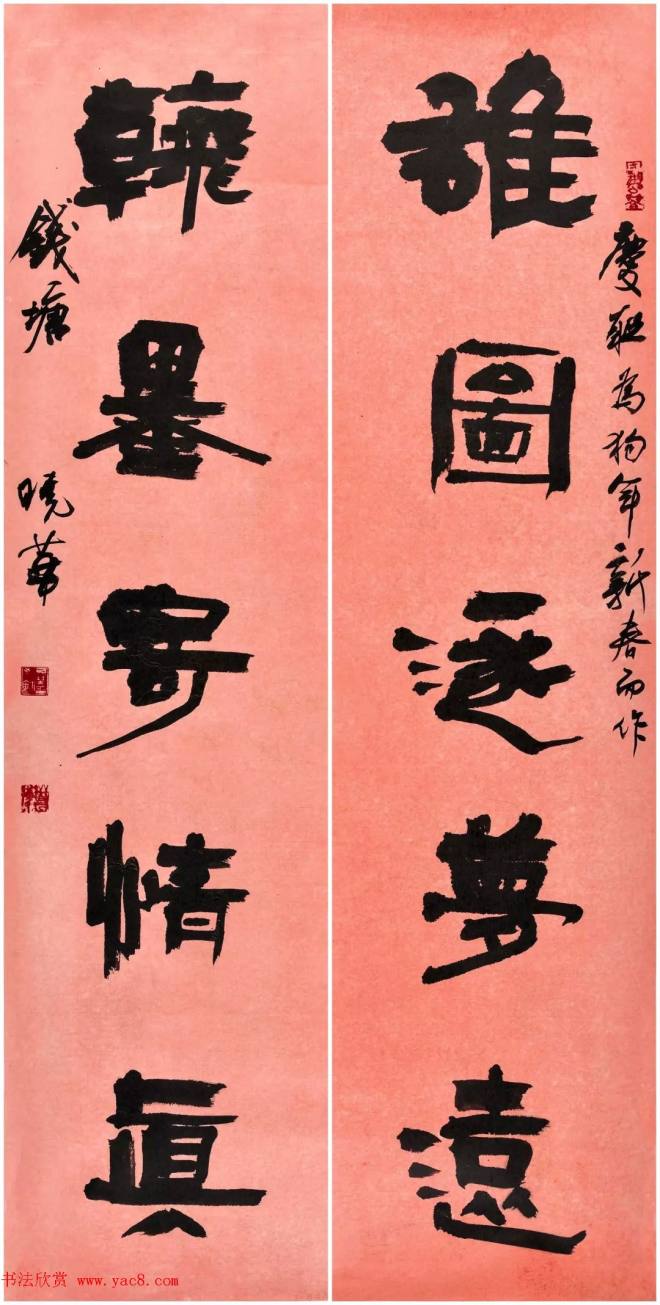 雄圖逐夢遠
慶聯為狗年新春而作
翰墨寄情眞
錢塘 曉華
书法欣赏 www.yac8.com